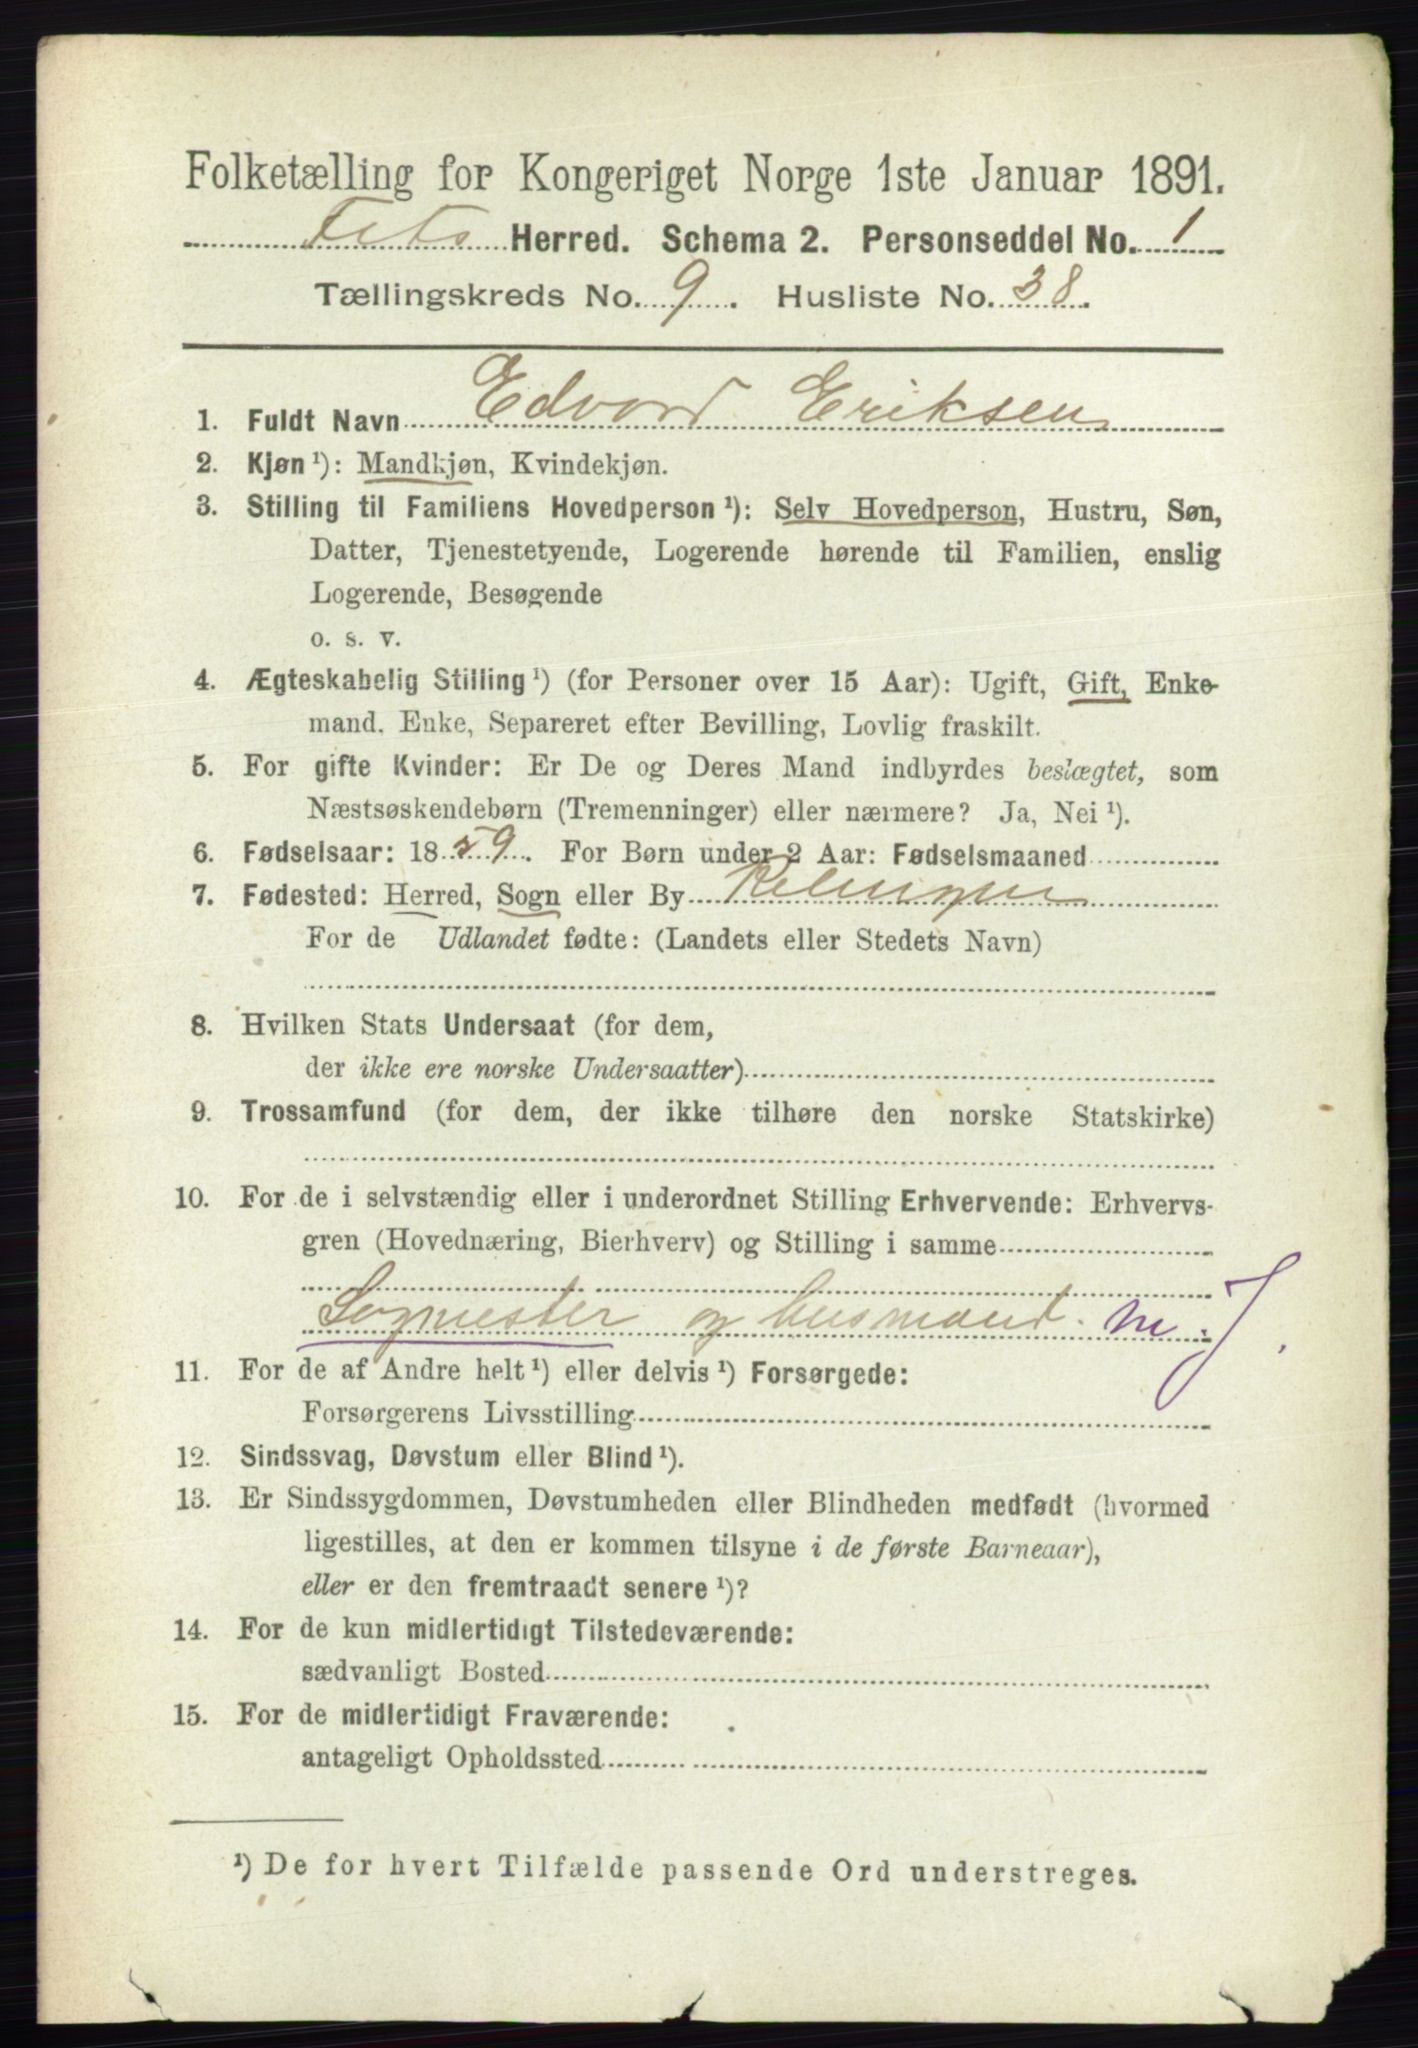 Folketælling for Kongeriget Norge 1ste Januar 1891.
Fets Herred. Schema 2. Personseddel No. 1
Tællingskreds No. 9. Husliste No. 38.
1. Fuldt Navn Edvard Eriksen
2. Kjøn ¹): Mandkjøn, Kvindekjøn.
3. Stilling til Familiens Hovedperson ¹): Selv Hovedperson, Hustru, Søn,
Datter, Tjenestetyende, Logerende hørende til Familien, enslig
Logerende, Besøgende
o. s. v.
4. Ægteskabelig Stilling ¹) (for Personer over 15 Aar): Ugift, Gift, Enke-
mand, Enke, Separeret efter Bevilling, Lovlig fraskilt.
5. For gifte Kvinder: Er De og Deres Mand indbyrdes beslægtet, som
Næstsøskendebørn (Tremenninger) eller nærmere? Ja, Nei ¹).
6. Fødselsaar: 1859. For Børn under 2 Aar: Fødselsmaaned
7. Fødested: Herred, Sogn eller By Relingen
For de Udlandet fødte: (Landets eller Stedets Navn)
8. Hvilken Stats Undersaat (for dem,
der ikke ere norske Undersaatter)
9. Trossamfund (for dem, der ikke tilhøre den norske Statskirke)
10. For de i selvstændig eller i underordnet Stilling Erhvervende: Erhvervs-
gren (Hovednæring, Bierhverv) og Stilling i samme
Sogmester og husmand. m. J.
11. For de af Andre helt ¹) eller delvis ¹) Forsørgede:
Forsørgerens Livsstilling
12. Sindssvag, Døvstum eller Blind ¹).
13. Er Sindssygdommen, Døvstumheden eller Blindheden medfødt (hvormed
ligestilles, at den er kommen tilsyne i de første Barneaar),
eller er den fremtraadt senere ¹)?
14. For de kun midlertidigt Tilstedeværende:
sædvanligt Bosted
15. For de midlertidigt Fraværende:
antageligt Opholdssted
¹) De for hvert Tilfælde passende Ord understreges.